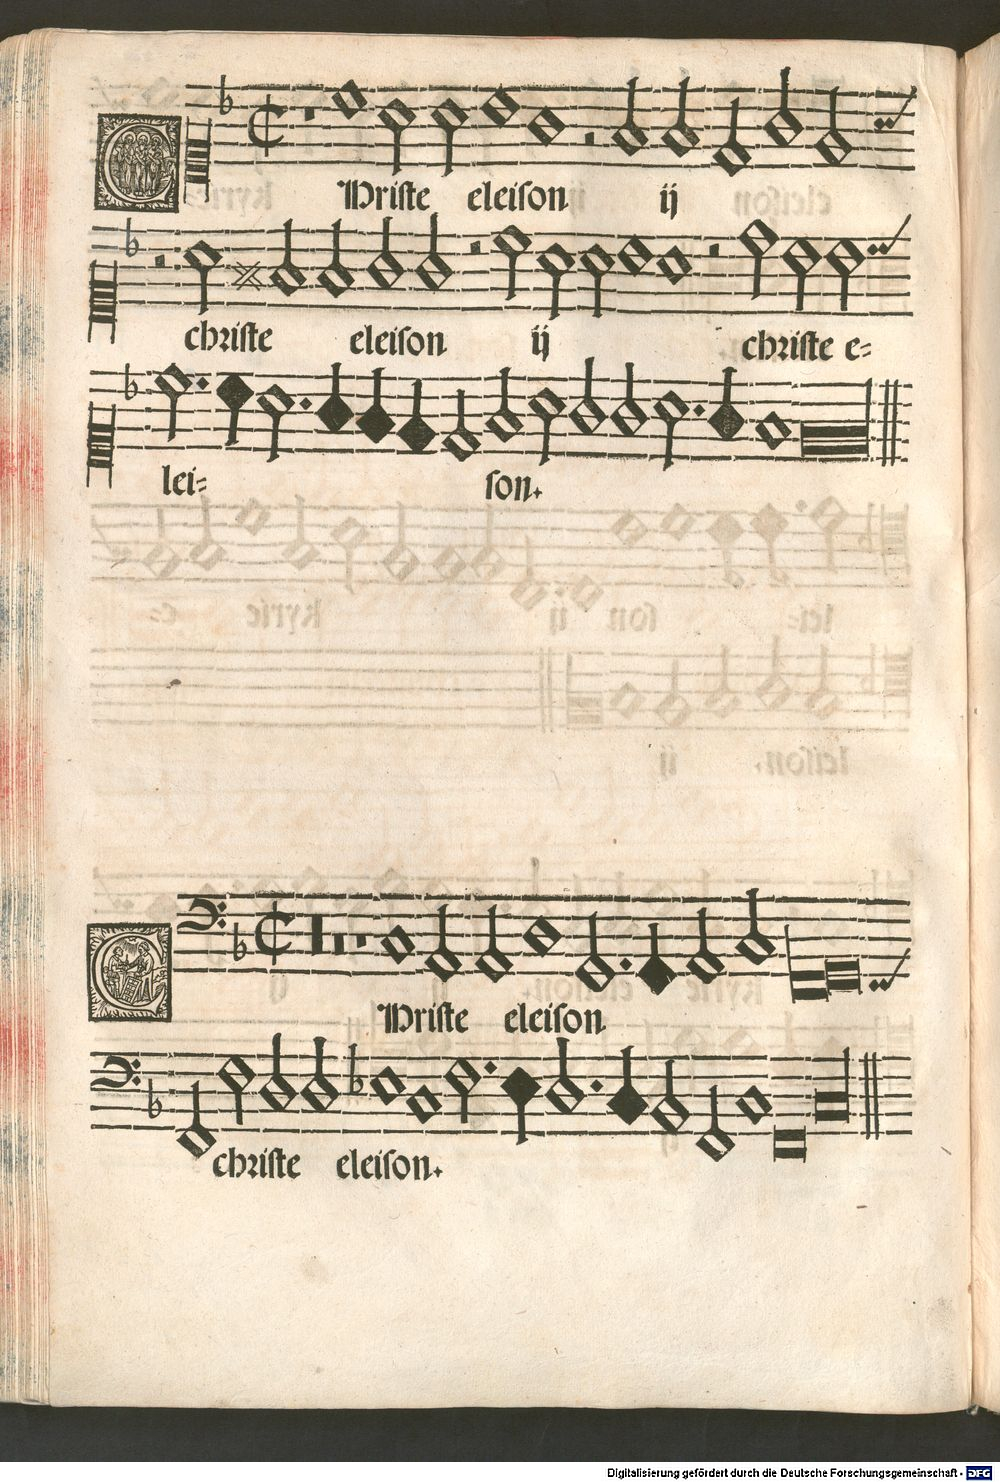 CHriste eleison ij
christe eleison ij christe e-
lei- son.
CHriste eleison
christe eleison.
Digitalisierung gefördert durch die Deutsche Forschungsgemeinschaft - DFG